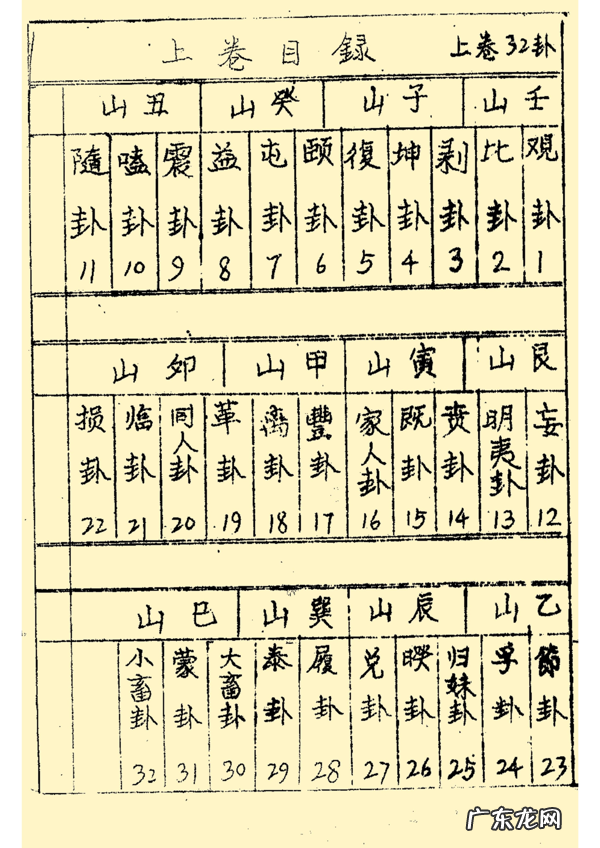 上卷目録
上卷32卦
壬山
子山
癸山
丑山
観卦 1
比卦 2
剥卦 3
坤卦 4
復卦 5
頤卦 6
屯卦 7
益卦 8
震卦 9
嗑卦 10
隨卦 11
艮山
寅山
甲山
卯山
妄卦 12
明夷卦 13
贲卦 14
既卦 15
家人卦 16
豐卦 17
离卦 18
革卦 19
同人卦 20
临卦 21
损卦 22
乙山
辰山
巽山
巳山
節卦 23
孚卦 24
归妹卦 25
睽卦 26
兑卦 27
履卦 28
泰卦 29
大畜卦 30
蒙卦 31
小畜卦 32
广东龙网